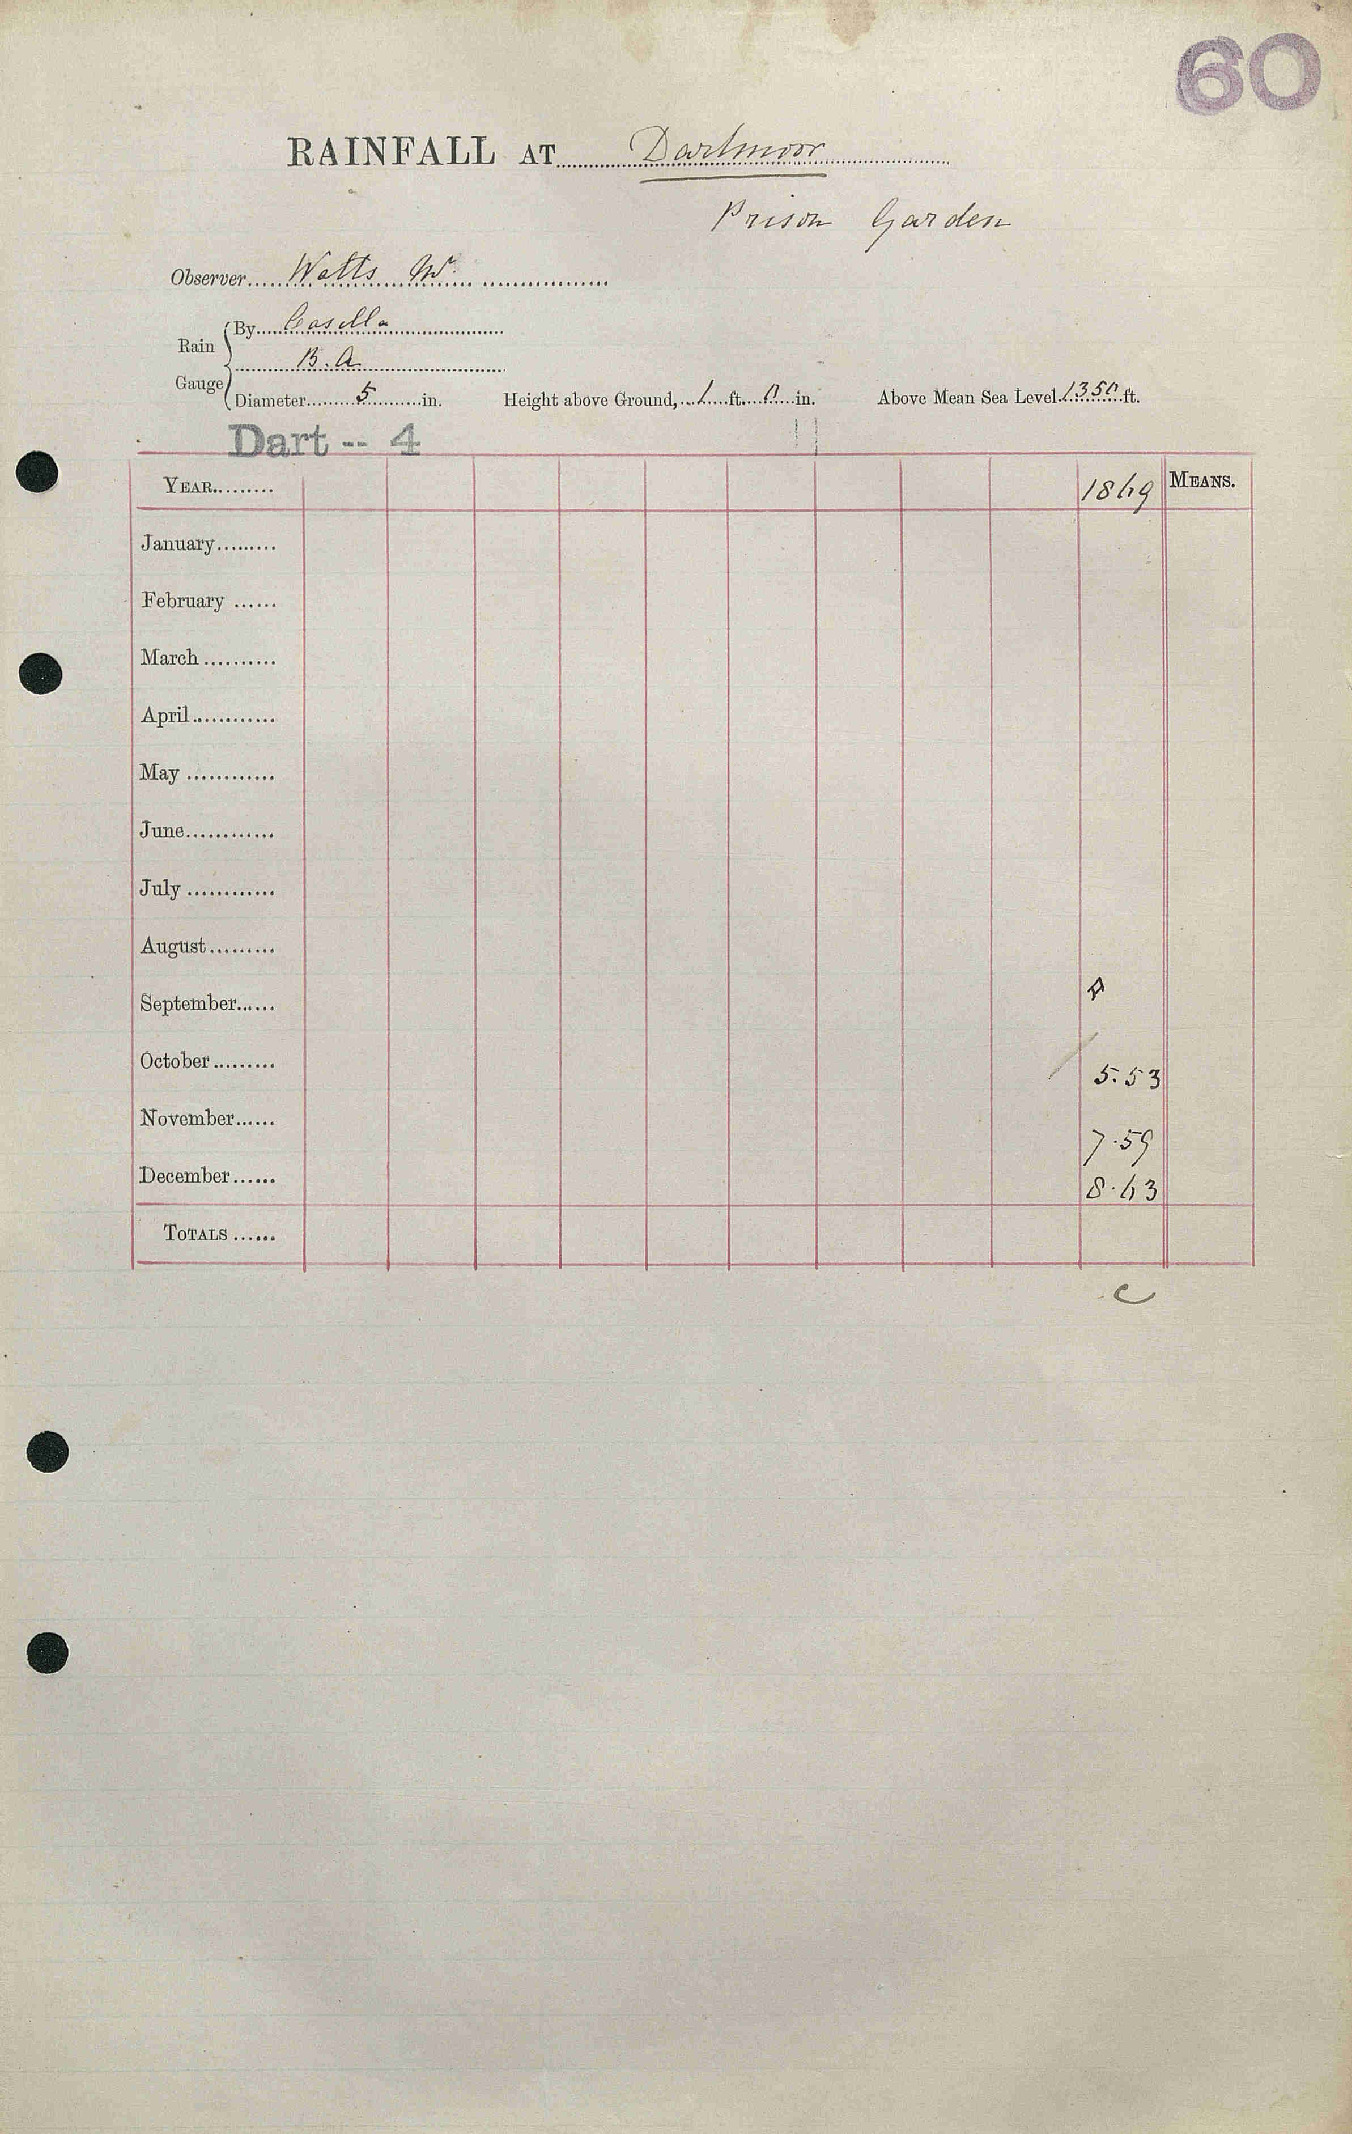 60
RAINFALL AT Dartmoor
Prison Garden
Observer Watts Mr.
Rain Gauge { By Casella
B.A
Diameter 5 in. Height above Ground, 1 ft. 0 in. Above Mean Sea Level 1350 ft.
Dart -- 4
YEAR 1869 MEANS.
January
February
March
April
May
June
July
August
September
October 5.53
November 7.59
December 8.63
TOTALS
C